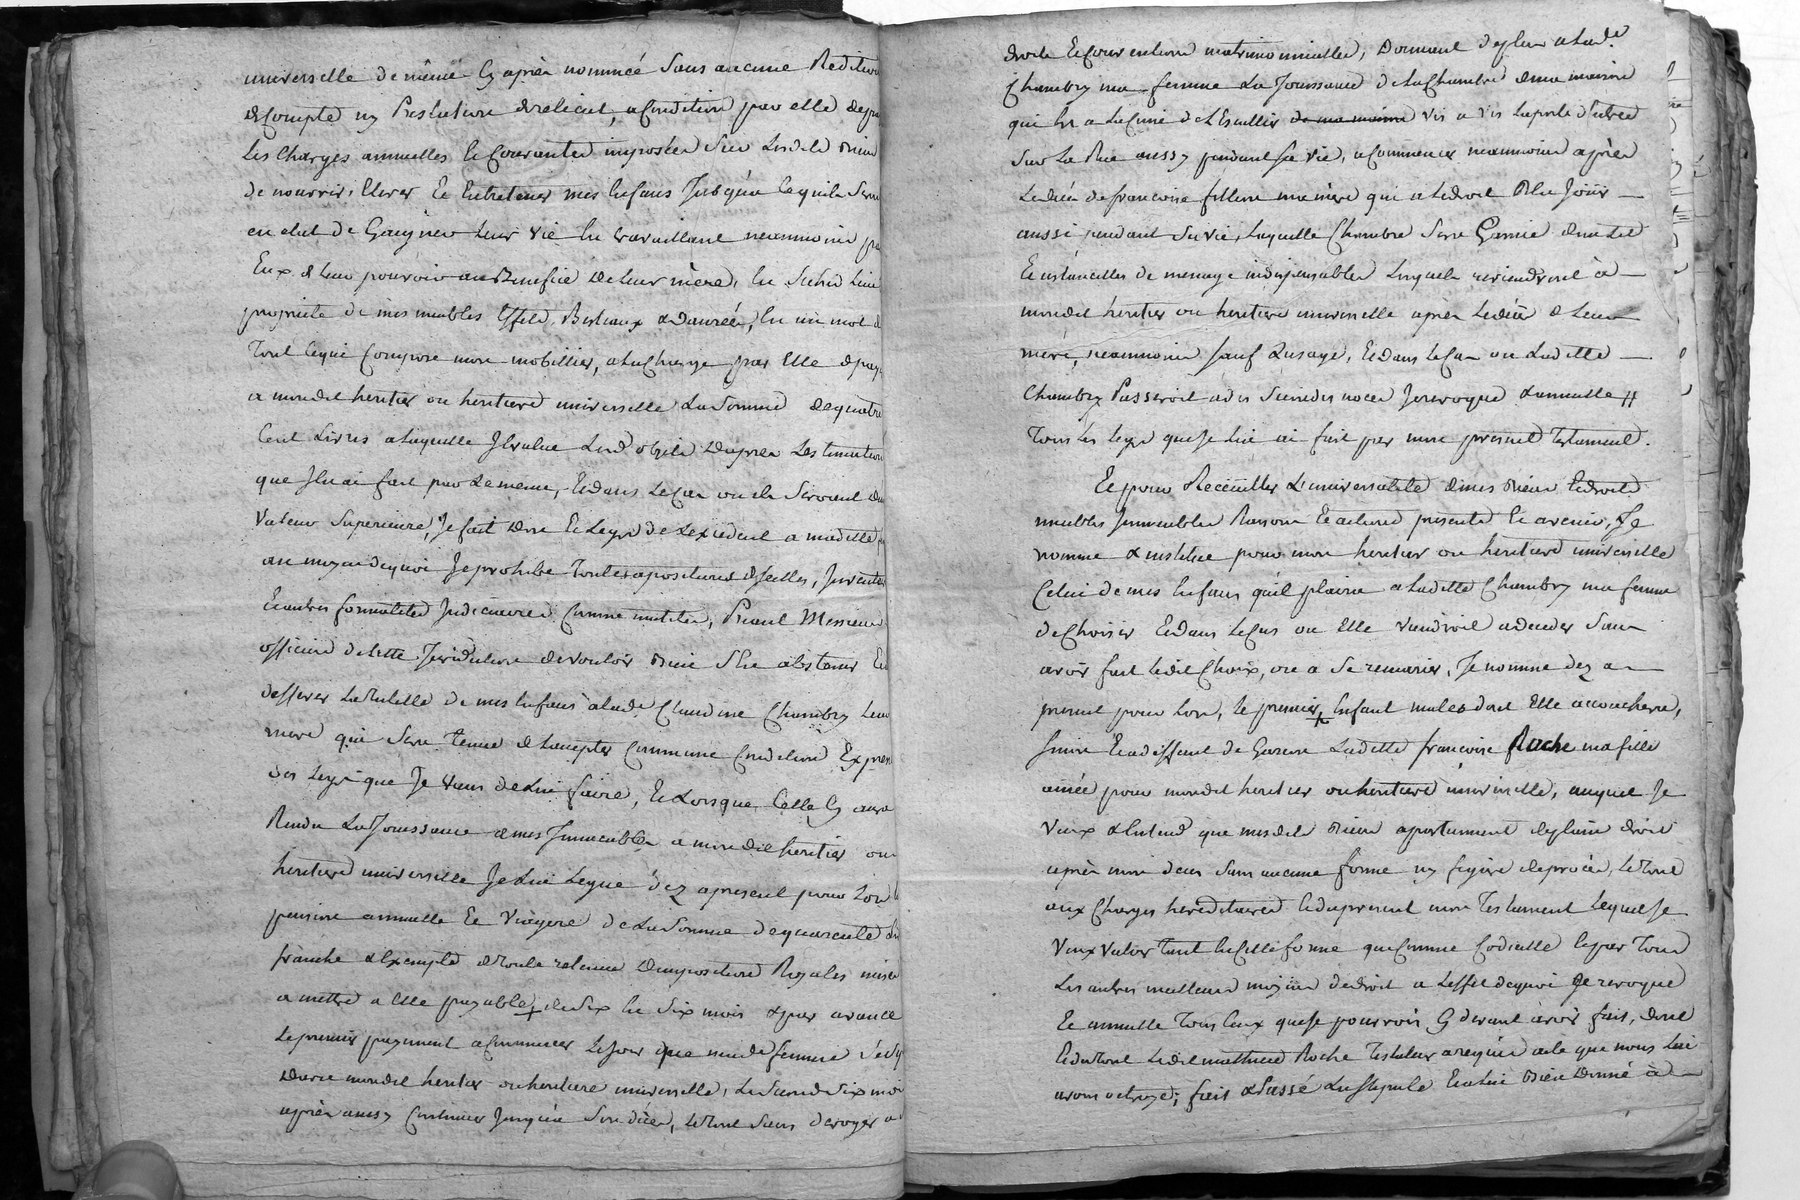 universelle de même Cy après nommée Sans aucune Reditions
de Compte ny Prestation de relicat, a Condition par elle de pa
les Charges annuelles Et Courantes imposées Sur Lesdits Biens
de nourrir, Elever Et Entretenir mes Enfans Jusqu'a Ce quils Seront
en etat de Gaigner Leur vie En travaillant neanmoins pa
Eux de Leur pouvoir au Benefice de Leur mère, En Sebid
propriété de mes meubles Effets, Bestiaux & danrées, En un mot d
Tout Ce qui Compose mon mobillier, a La Charge par Elle de pay
a mondit heritier ou heritiere universelle La Somme de quatre
Cent Livres a Laquelle J'Evalue Lesd. objets D'après L'estimation
que J'En ai fait par Le menu, Et dans Le Cas ou ils Seroient d'un
Valeur Superieure, Je fait Don Et Legs de L'exedent a maditte
au moyen de quoi Je prohibe Toutes apositions de Scelles, Inventai
Et autres formalités Judiciaires Comme inutiles, Priant Messieurs
officiers de Cette Jurisdiction de vouloir Bien S'En abstenir Et
defferer La tutelle de mes Enfans à Lade. Claudine Chambry Leur
mere qui Sera tenue de L'accepter Comme une Condition Express
des Legs que Je Viens de Lui faire, Et Lorsque Celle Cy aura
Rendu La Jouissance de mes Immeubles a mondit heritier ou
heritiere universelle Je Lui Legue dez apresent pour Lors
pension annuelle Et Viagere de La Somme de quarente
franche & Exempte de toute retenue D'impositions Royales mises
a mettre a Elle payable de Six En Six mois & par avance
Le premier payement a Commencer Le Jour que made. femme
mondit heritier ou heritiere universelle, Le Second Six mois
après aussy Continuer Jusqu'a Son décès, Le tout Sans deroger a
droits Et Conventions matrimonialles, Donnant de plus a Lade.
Chambry ma femme La Jouissance de La Chambre de ma maison
qui Est a La Cime de L'Escallier de ma maison Vis a Vis La porte d'Entrée
Sur La Rue aussy pendant Sa vie, a Commencer neanmoins après
Le decès de francoise fillion ma mère qui a Le droit d'En Joüir
aussi pendant Sa vie, Laquelle Chambre Sera Garnie d'un Lit
Et ustancilles de menage indispensables Lesquels reviendront à
mondit heritier ou heritiere universelle après Le décès de Leur
mere, neanmoins Sauf L'usage, Et dans Le Cas ou Laditte
Chambry Passeroit a des Secondes noces Je revoque & annulle
Tous Les Legs que Je Lui ai fait par mon present Testament.
Et pour Receüillir L'universalité de mes Biens Et droits
meubles Immeubles Raisons Et actions presents Et avenir, Je
nomme & institue pour mon heritier ou heritiere universelle
Celui de mes Enfans qu'il plaira a Laditte Chambry ma femme
de Choisir Et dans Le Cas ou Elle viendroit a deceder Sans
avoir fait Ledit Choix, ou a Se remarier, Je nomme dez a
present pour Lors, Le premier Enfant male dont Elle accouchera,
Sinon Et adeffaut de Garcon Laditte francoise Roche ma fille
ainée pour mondit heritier ou heritiere universelle, auquel Je
Veux & Entend que mesdits Biens apartiennent de plain droit
après mon deces Sans aucune forme ny figure de procès, Le tout
aux Charges hereditaires Et du present mon Testament Lequel Je
Veux Valoir tant En Cette forme que Comme Codicille Et par Tous
Les autres meilleurs moyens de droit a L'effet de quoi Je revoque
Et annulle Tous Ceux que Je pourrois Cy devant avoir fait, dont
Et du tout Ledit mathieu Roche Testateur a requis acte que nous Lui
avons octroyé; fait & Passé Lu Stipulé Et a Lui Bien Donné à